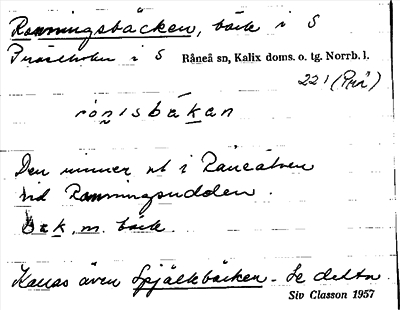 Ronningsbäcken, bäck i S
Prästholm i S Råneå sn, Kalix doms. o. tg. Norrb. l.
221 (Rå)
rònisbäkan
Den rinner ut i Råneälven
vid Ronningsudden.
bäk, m. bäck.
Kallas även Spjälkbäcken. Se detta
Siv Classon 1957